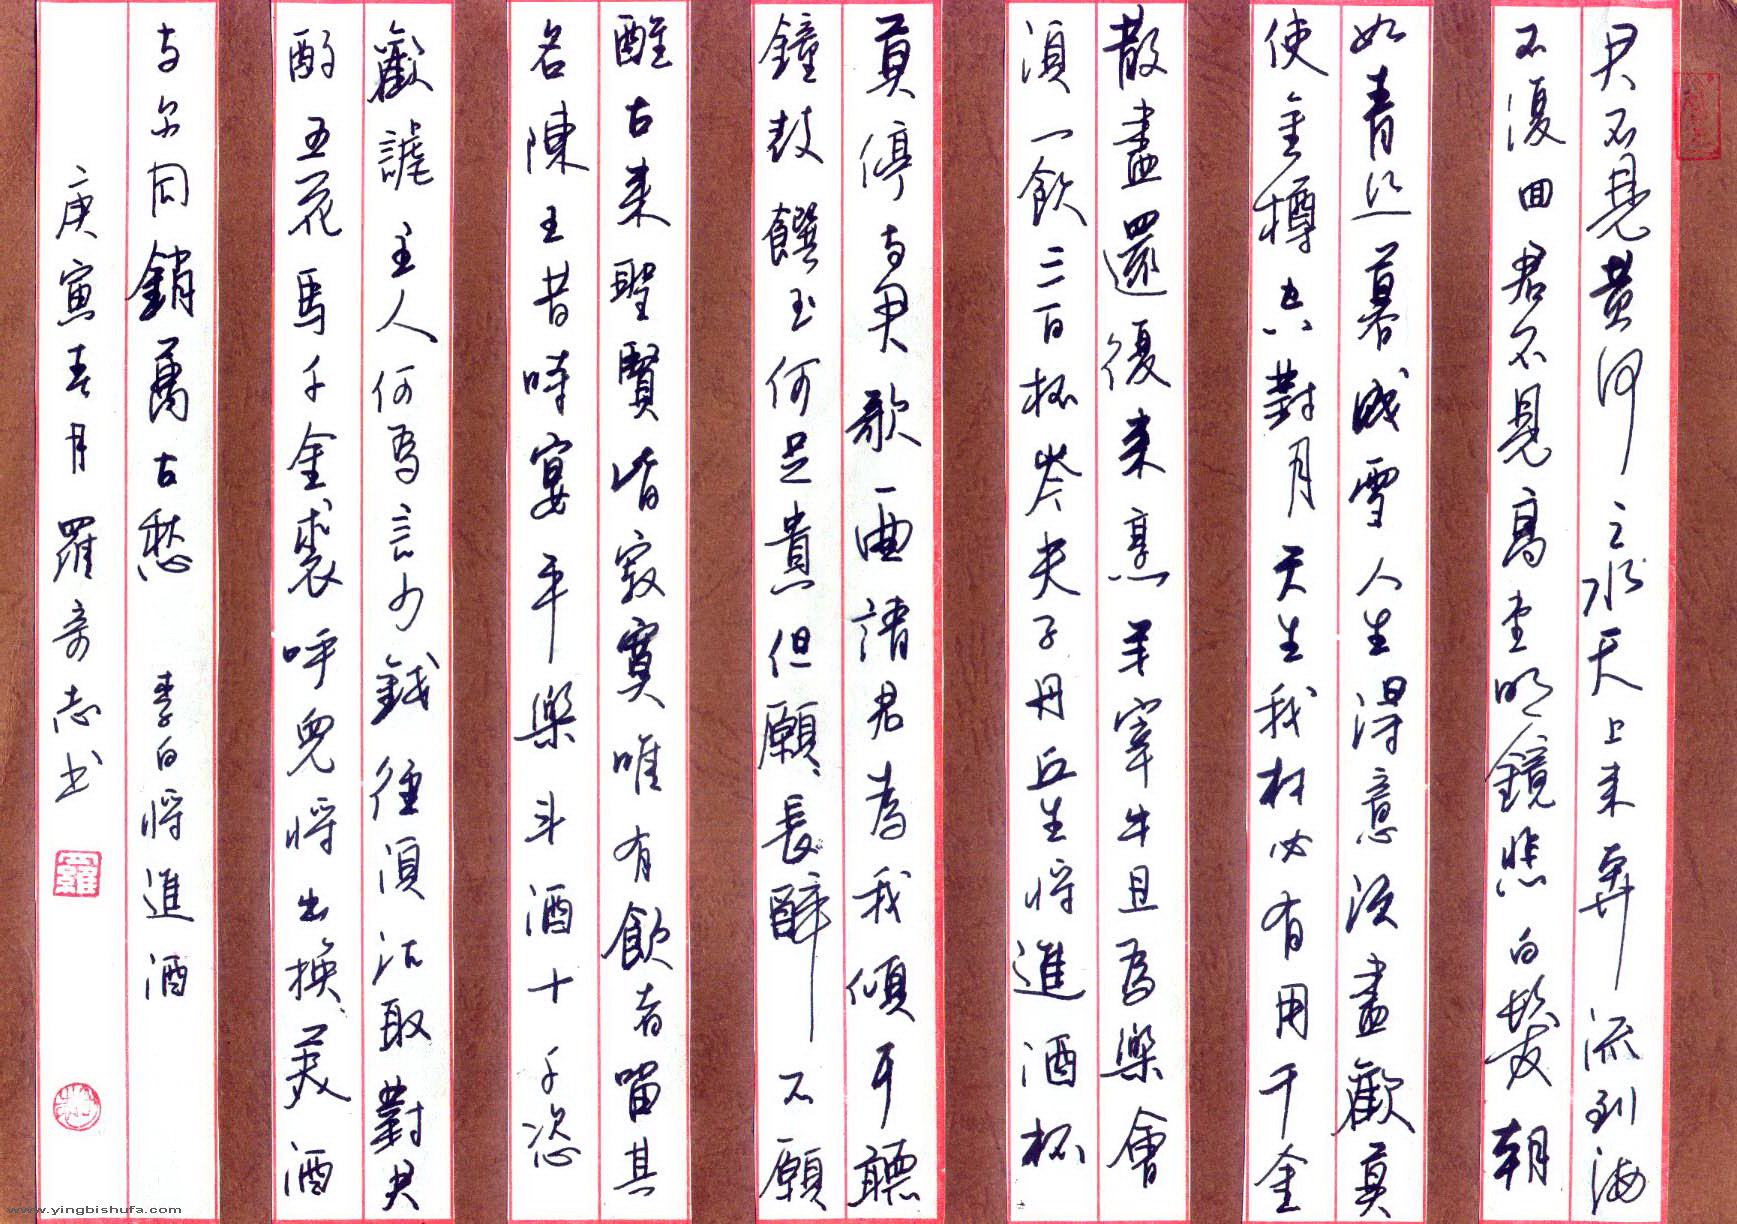 君不見黄河之水天上来奔流到海
不復回君不見高堂明鏡悲白髮朝
如青丝暮成雪人生得意须盡歡莫
使金樽空對月天生我材必有用千金
散盡還復来烹羊宰牛且為樂會
須一飲三百杯岑夫子丹丘生将進酒杯
莫停与君歌一曲請君為我傾耳聽
鐘鼓饌玉何足貴但願長醉不願
醒古来聖賢皆寂寞唯有飲者留其
名陳王昔時宴平樂斗酒十千恣
歡謔主人何為言少錢徑須沽取對君
酌五花馬千金裘呼兒将出換美酒
与尔同銷萬古愁 李白将進酒
庚寅春月羅奇志书
羅
www.yingbishufa.com